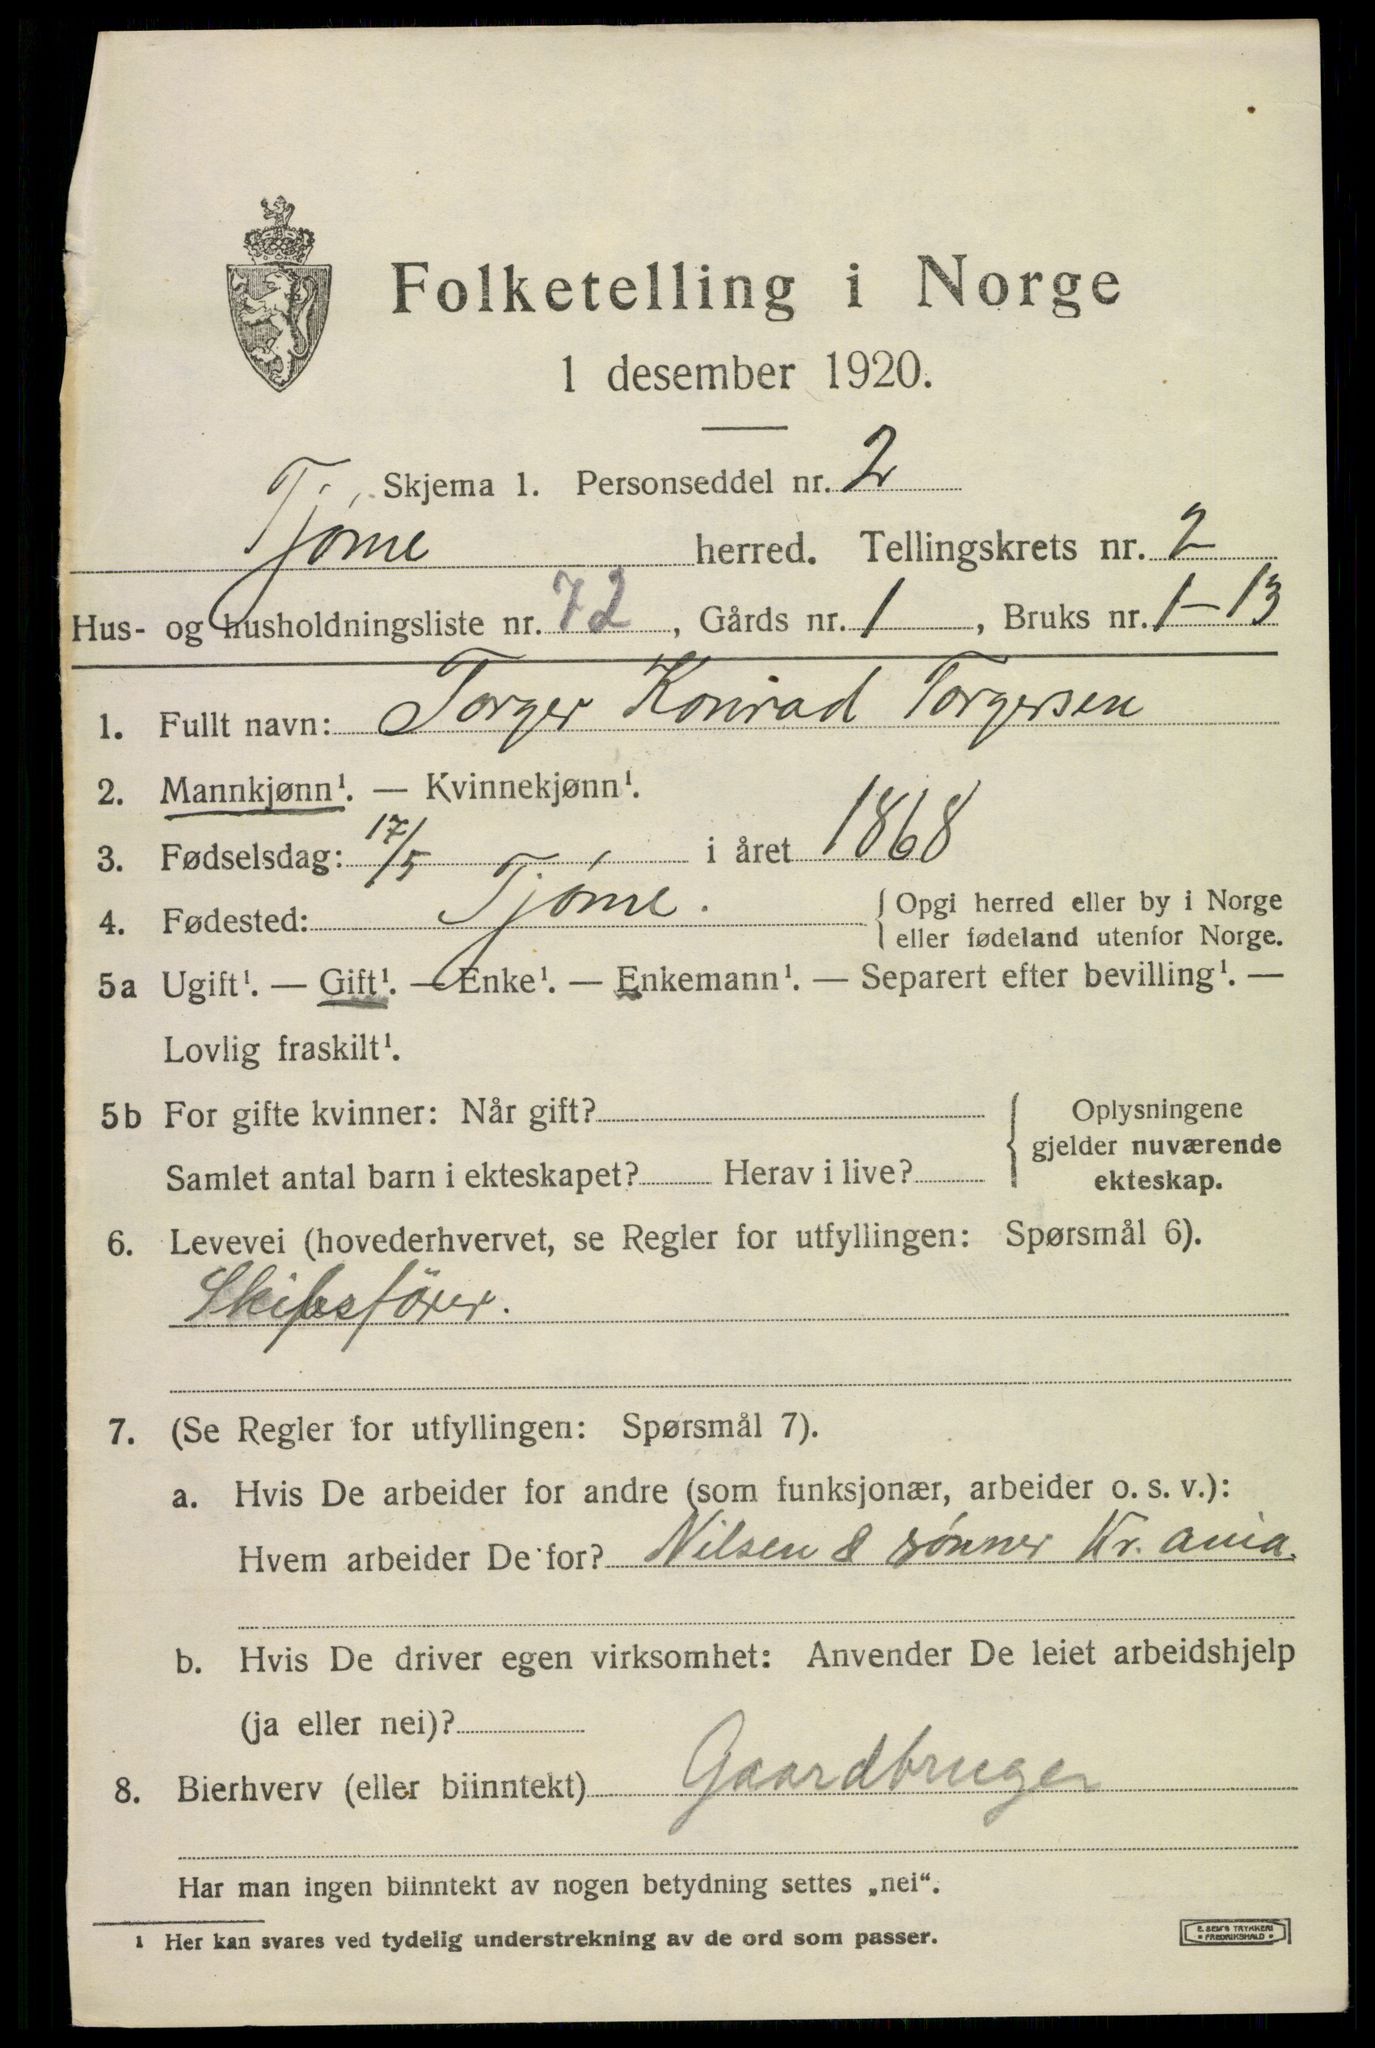 Folketelling i Norge
1 desember 1920.
Skjema 1. Personseddel nr. 2
Tjøme herred. Tellingskrets nr. 2
Hus- og husholdningsliste nr. 72, Gårds nr. 1, Bruks nr. 1-13
1. Fullt navn: Torger Konrad Torgersen
2. Mannkjønn¹. — Kvinnekjønn¹.
3. Fødselsdag: 17/5 i året 1868
4. Fødested: Tjøme. { Opgi herred eller by i Norge
eller fødeland utenfor Norge.
5a Ugift¹. — Gift¹. — Enke¹. — Enkemann¹. — Separert efter bevilling¹. —
Lovlig fraskilt¹.
5b For gifte kvinner: Når gift? { Oplysningene
gjelder nuværende
Samlet antal barn i ekteskapet? Herav i live? ekteskap.
6. Levevei (hovederhvervet, se Regler for utfyllingen: Spørsmål 6).
Skibsförer.
7. (Se Regler for utfyllingen: Spørsmål 7).
a. Hvis De arbeider for andre (som funksjonær, arbeider o. s. v.):
Hvem arbeider De for? Nilsen & sønner Kr. ania.
b. Hvis De driver egen virksomhet: Anvender De leiet arbeidshjelp
(ja eller nei)?
8. Bierhverv (eller biinntekt) Gaardbruger
Har man ingen biinntekt av nogen betydning settes „nei“.
¹ Her kan svares ved tydelig understrekning av de ord som passer.
E. SEM'S TRYKKERI
• FREDRIKSHALD •